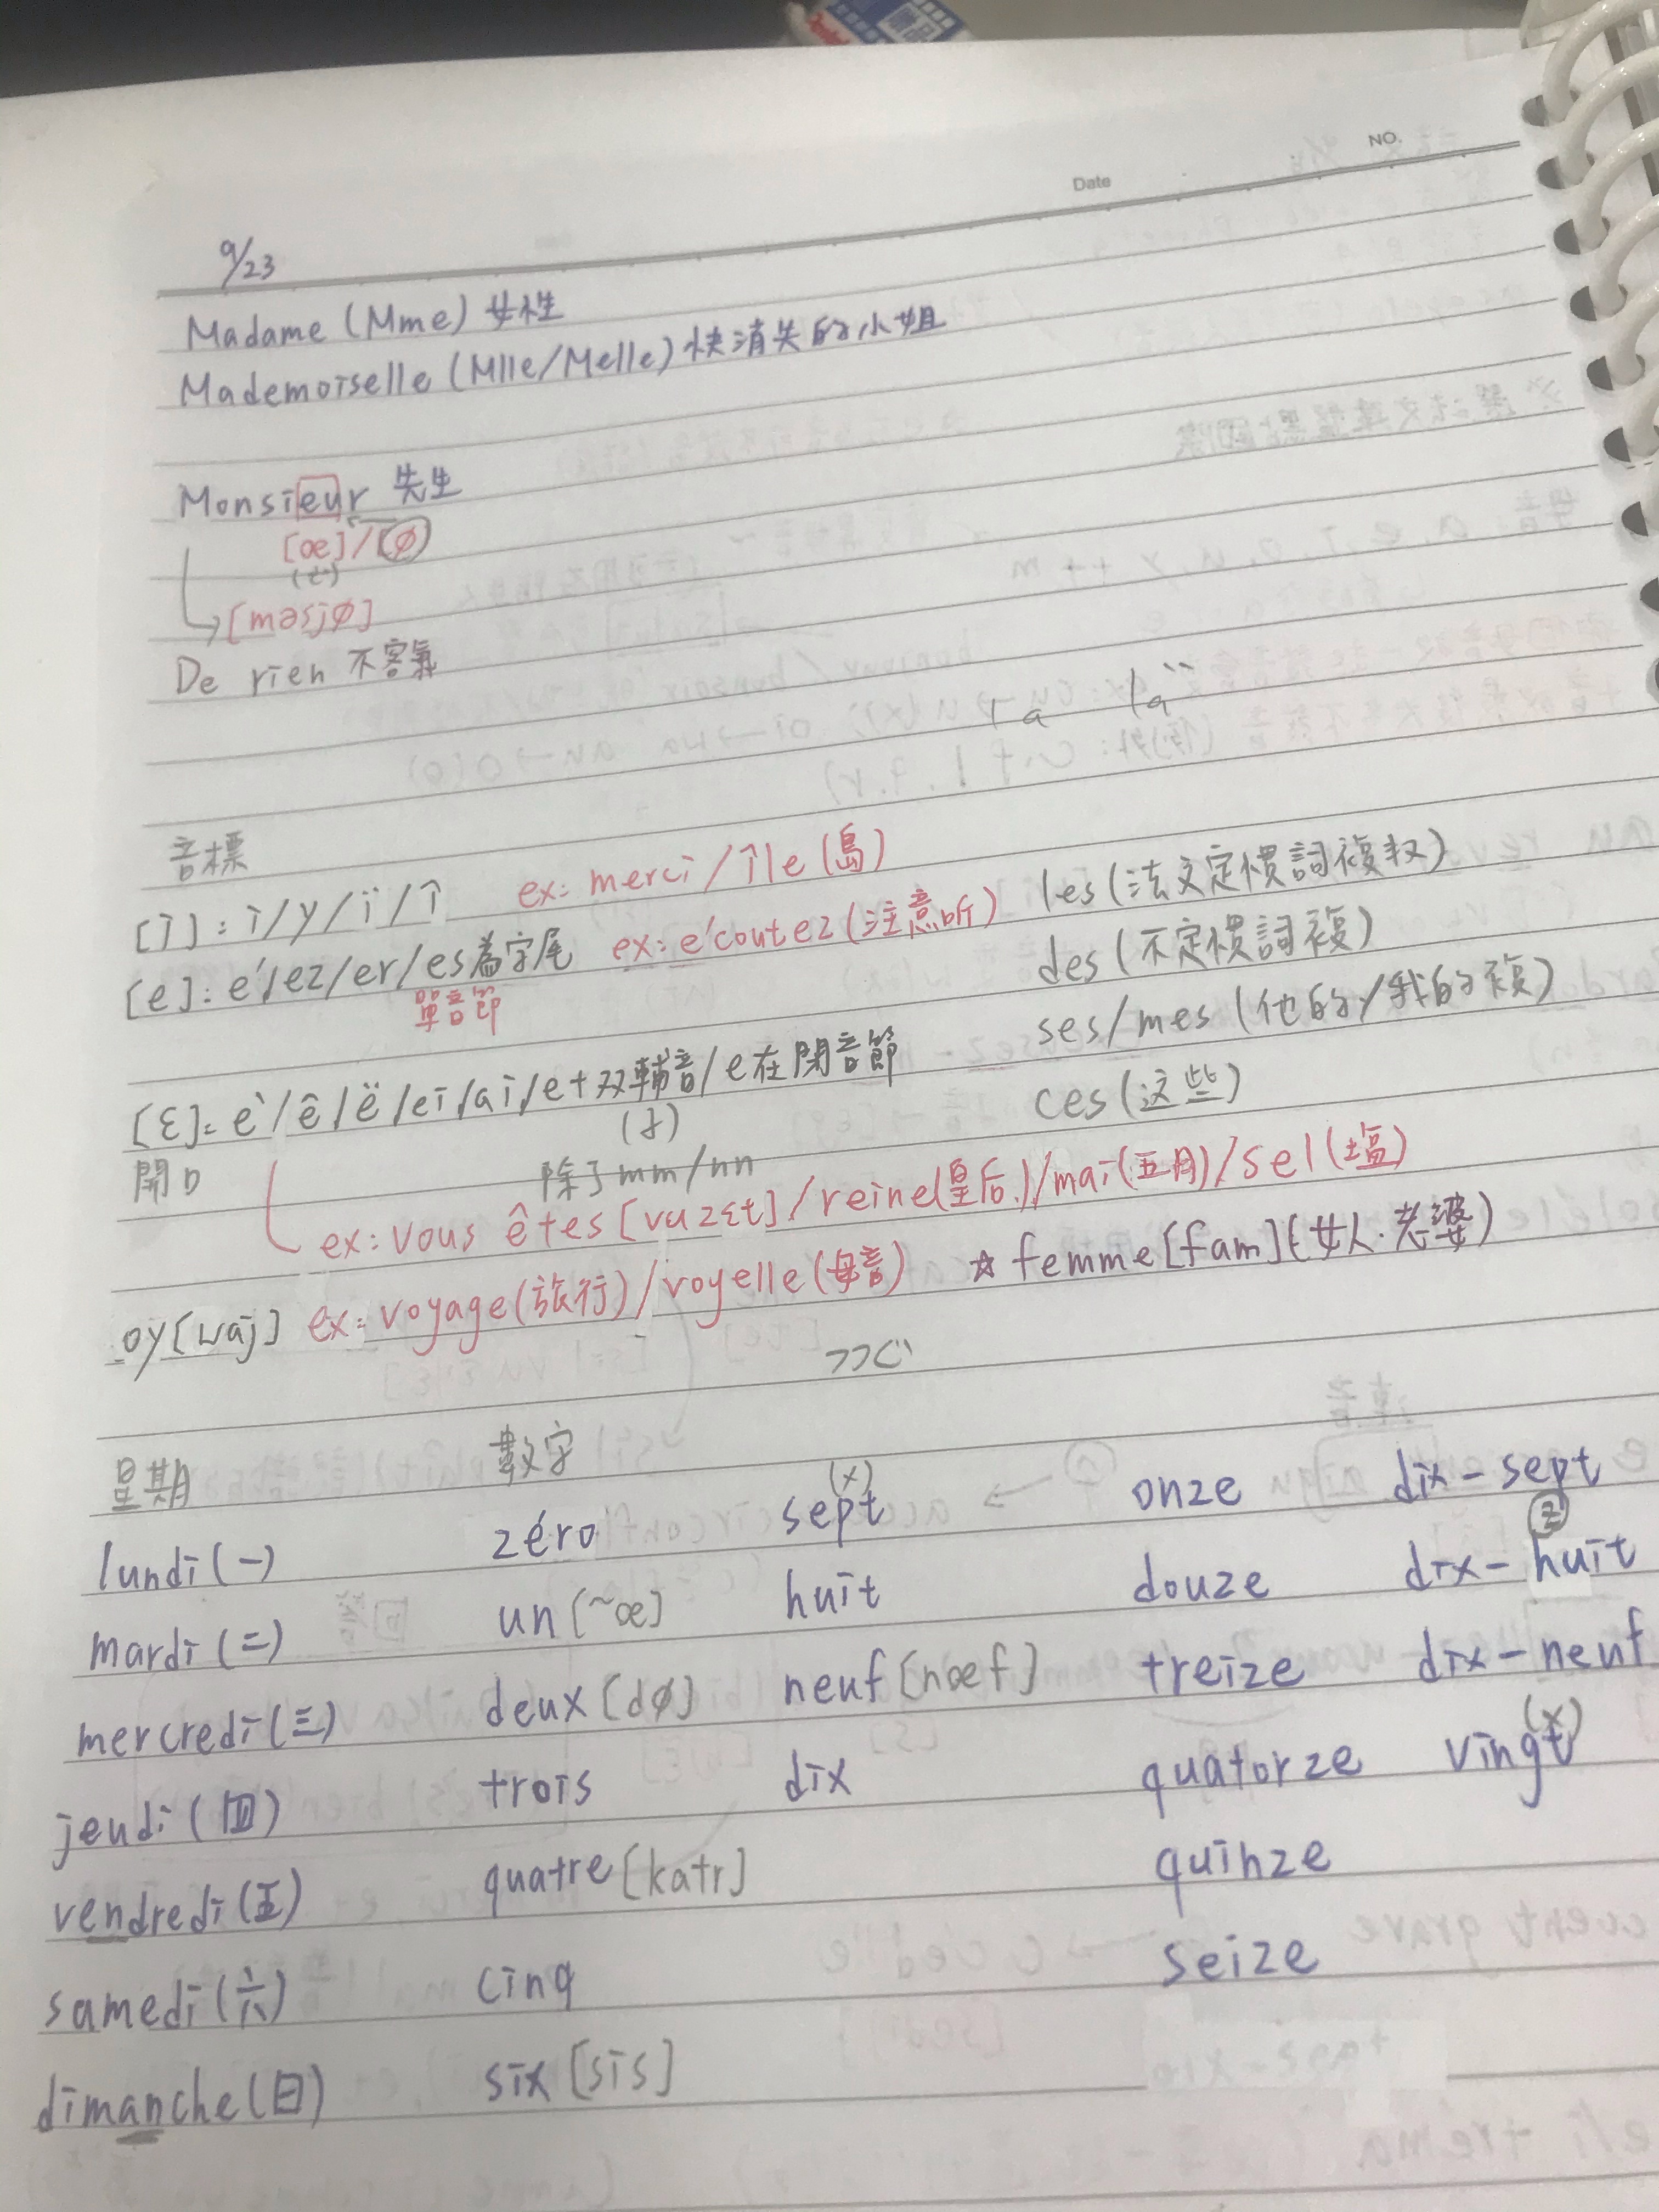 NO.
Date
9/23
Madame (Mme) 女性
Mademoiselle (Mlle/Melle) 快消失的小姐
Monsieur 先生
[œ]/[ø]
(ㄜ)
[məsjø]
De rien 不客氣
音標
[i]: i/y/ï/î ex: merci/île (島)
les (法文定慣詞複数)
[e]: é/ez/er/es為字尾 ex: écoutez (注意听)
單音節
des (不定慣詞複)
ses/mes (他的/我的複)
[ɛ]: è/ê/ë/ei/ai/e+双輔音/e在閉音節
ces (这些)
開口
除了mm/nn
ex: vous êtes [vuzɛt]/reine(皇后)/mai(五月)/sel(塩)
oy[waj] ex: voyage(旅行)/voyelle(母音) ☆ femme[fam](女人.老婆)
星期 數字
lundi(一) zéro sept (x) onze dix-sept
mardi(二) un [~œ] huit douze dix-huit (z)
mercredi(三) deux [dø] neuf [nœf] treize dix-neuf
jeudi(四) trois dix quatorze vingt (x)
vendredi(五) quatre [katr] quinze
samedi(六) cinq seize
dimanche(日) six [sis]